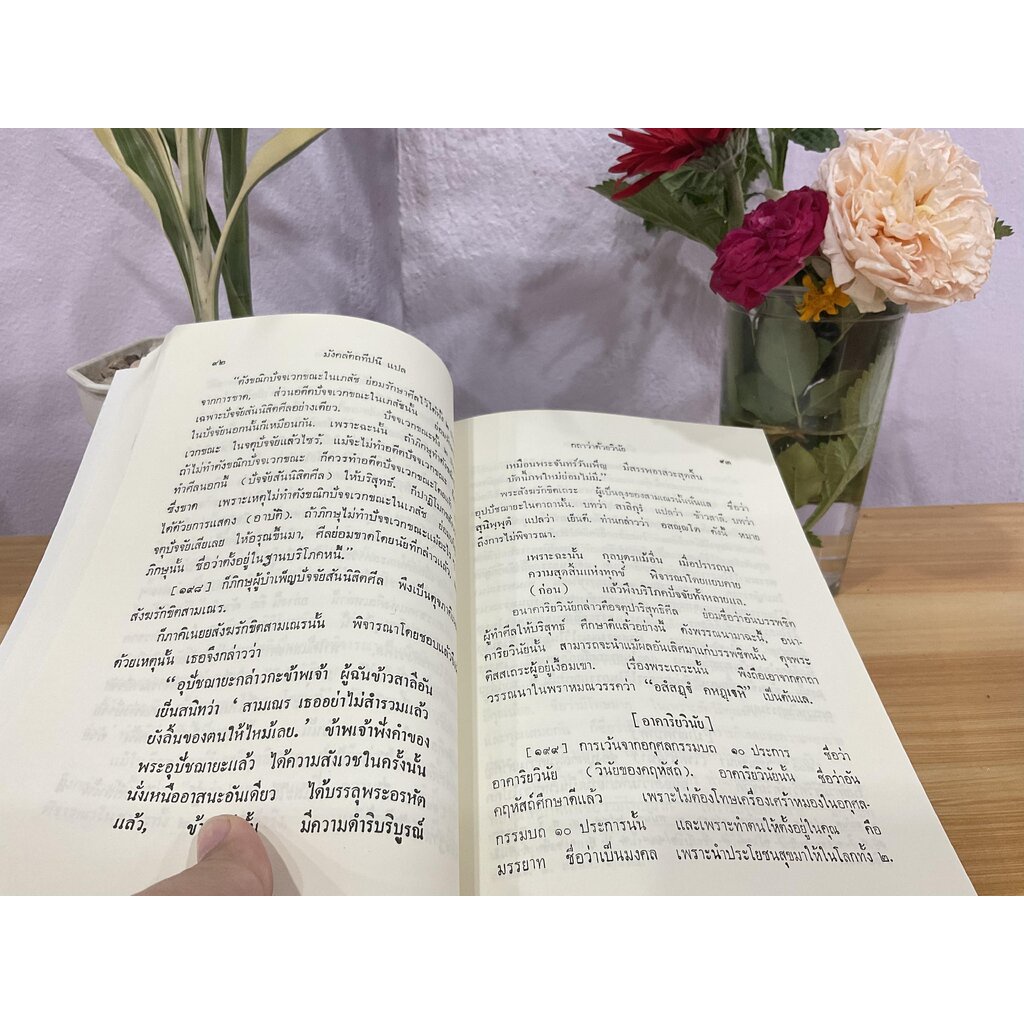 ๙๒
มังคลัตถทีปนี แปล
"ดังขณิกปัจจเวกขณะในเภสัช ย่อมรักษาศีลไว้ได้
จากการขาด, ส่วนอดีตปัจจเวกขณะในเภสัชนั้น
เฉพาะปัจจัยสันนิสิตศีลอย่างเดียว. ปัจจเวกขณะ
ในปัจจัยนอกนั้นก็เหมือนกัน. เพราะฉะนั้น ถ้าภิกษุทำ
เวกขณะ ในจตุปัจจัยแล้วไซร้, แม้จะไม่ทำอดีตปัจจเวกขณะ
ถ้าไม่ทำดังขณิกปัจจเวกขณะ ก็ควรทำอดีตปัจจเวกขณะ
ทำศีลนอกนี้ (ปัจจัยสันนิสิตศีล) ให้บริสุทธ์. ก็ปาฏิโมกข
ซึ่งขาด เพราะเหตุไม่ทำดังขณิกปัจจเวกขณะในเภสัช
ได้ด้วยการแสดง (อาบัติ). ถ้าภิกษุไม่ทำปัจจเวกขณะแม้
จตุปัจจัยเสียเลย ให้อรุณขึ้นมา, ศีลย่อมขาดโดยนัยที่กล่าวแล้ว,
ภิกษุนั้น ชื่อว่าตั้งอยู่ในฐานบริโภคหนี้."
[๑๙๘] ก็ภิกษุผู้บำเพ็ญปัจจัยสันนิสิตศีล พึงเป็นดุจ
สังฆรักขิตสามเณร.
ก็ภาคิเนยยสังฆรักขิตสามเณรนั้น พิจารณาโดยชอบแล้ว
ด้วยเหตุนั้น เธอจึงกล่าวว่า
"อุปัชฌายะกล่าวกะข้าพเจ้า ผู้ฉันข้าวสาลีอัน
เย็นสนิทว่า 'สามเณร เธออย่าไม่สำรวมแล้ว
ยังลิ้นของตนให้ไหม้เลย.' ข้าพเจ้าฟังคำของ
พระอุปัชฌายะแล้ว ได้ความสังเวชในครั้งนั้น
นั่งเหนืออาสนะอันเดียว ได้บรรลุพระอรหัต
แล้ว, มีความดำริบริบูรณ์
กถาว่าด้วยวินัย
๙๓
เหมือนพระจันทร์วันเพ็ญ มีสรรพอาสวะสุดสิ้น
บัดนี้ภพใหม่ย่อมไม่มี."
พระสังฆรักขิตเถระ ผู้เป็นลุงของสามเณรนั้นนั่นแล ชื่อว่า
อุปัชฌายะในคาถานั้น. บทว่า สาลิกุรํ แปลว่า ข้าวสาลี. บทว่า
สุนิพฺพุตํ แปลว่า เย็นดี. ท่านกล่าวว่า อสญฺญโต ดังนี้ หมาย
ถึงการไม่พิจารณา.
เพราะฉะนั้น กุลบุตรแม้อื่น เมื่อปรารถนา
ความสุดสิ้นแห่งทุกข์ พิจารณาโดยแยบคาย
(ก่อน) แล้วพึงบริโภคปัจจัยทั้งหลายแล.
อนาคาริยวินัยกล่าวคือจตุปาริสุทธิศีล ย่อมชื่อว่าอันบรรพชิต
ผู้ทำศีลให้บริสุทธ์ ศึกษาดีแล้วอย่างนี้ ดังพรรณนามาฉะนี้. อนา-
คาริยวินัยนั้น สามารถจะนำแม้ผลอันเลิศมาแก่บรรพชิตนั้น ดุจพระ
ติสสเถระผู้อยู่เงื้อมเขา. เรื่องพระเถระนั้น พึงถือเอาจากอาถา
วรรณนาในพราหมณวรรคว่า "อสํสฏฺฐํ คหฏฺเฐหิ" เป็นต้นแล.
[อาคาริยวินัย]
[๑๙๙] การเว้นจากอกุศลกรรมบถ ๑๐ ประการ ชื่อว่า
อาคาริยวินัย (วินัยของคฤหัสถ์). อาคาริยวินัยนั้น ชื่อว่าอัน
คฤหัสถ์ศึกษาดีแล้ว เพราะไม่ต้องโทษเครื่องเศร้าหมองในอกุศล-
กรรมบถ ๑๐ ประการนั้น และเพราะทำตนให้ตั้งอยู่ในคุณ คือ
มรรยาท ชื่อว่าเป็นมงคล เพราะนำประโยชนสุขมาให้ในโลกทั้ง ๒.